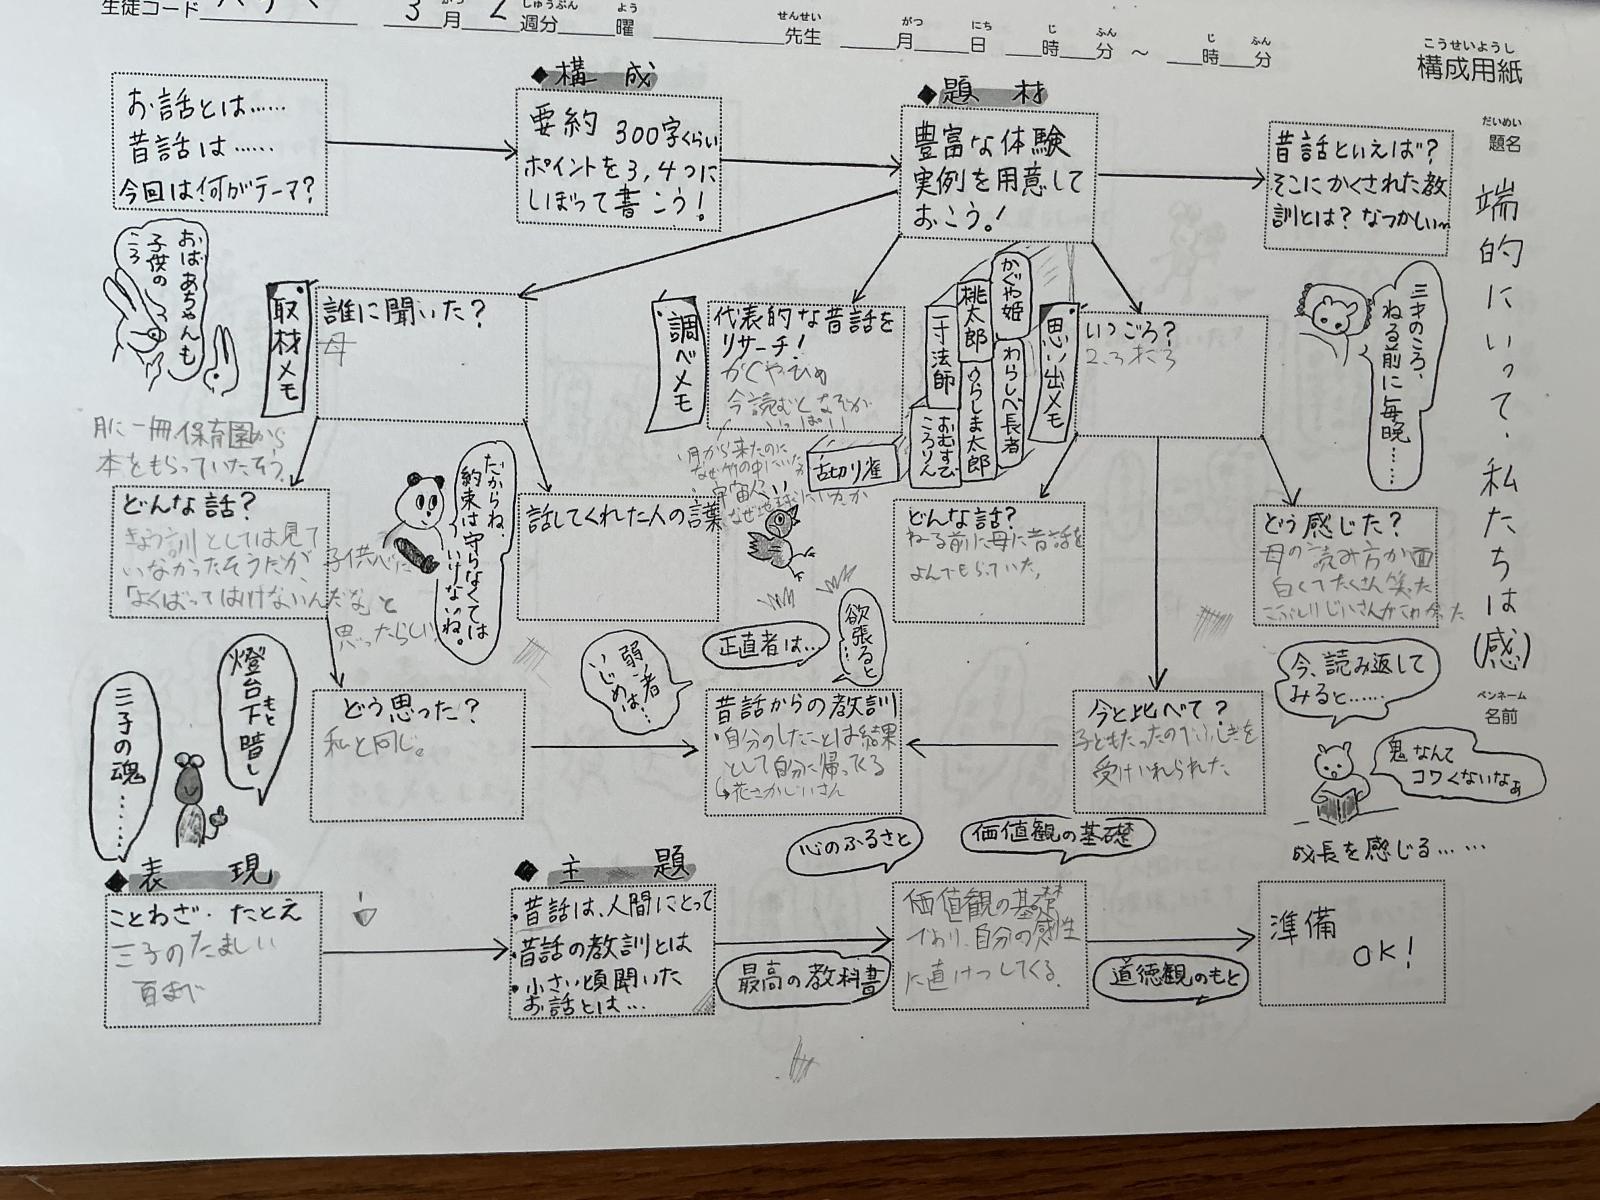 生徒コード
3月2週分 曜
しゅうぶん
よう
せんせい
先生
がつ にち じ ふん じ ふん
月 日 時 分 ~ 時 分
こうせいようし
構成用紙
だいめい
題名
端的にいって、私たちは(感)
ペンネーム
名前
お話とは……
昔話は……
今回は何がテーマ?
◆構成
要約 300字くらい
ポイントを3,4つに
しぼって書こう!
◆題材
豊富な体験
実例を用意して
おこう。!
昔話といえば?
そこにかくされた教
訓とは? なつかしい~
おばあちゃんも
子供の
ころ
取材メモ
誰に聞いた?
母
月に一冊保育園から
本をもらっていたそう。
調べメモ
代表的な昔話を
リサーチ!
かぐやひめ
今読むとなぞが
いっぱい
月から来たのに
なぜ竹の中にいたか
宇宙人?
なぜ地球にいたか
かぐや姫
桃太郎
一寸法師
わらしべ長者
うらしま太郎
おむすび
ころりん
舌切り雀
思い出メモ
いつごろ?
2.3才ごろ
三才のころ、
ねる前に毎晩……
どんな話?
きょう訓としては見て
いなかったそうだが、子供心に
「よくばってはいけないんだな」と
思ったらしい
だからね、
約束は守らなくては
いけないね。
話してくれた人の言葉
どんな話?
ねる前に母に昔話を
よんでもらっていた。
どう感じた?
母の読み方が面
白くてたくさん笑った
こぶとりじいさんがこわかった
燈台下暗し
もと
三子の魂……
どう思った?
私と同じ。
弱い者
いじめは…
正直者は…
欲張ると
…
昔話からの教訓
・自分のしたことは結果
として自分に帰ってくる
↳花さかじいさん
今と比べて?
子どもだったのでふしぎを
受けいれられた
今、読み返して
みると……
鬼なんて
コワくないなぁ
成長を感じる……
心のふるさと
価値観の基礎
◆表現
ことわざ・たとえ
三子のたましい
百まで
◆主題
・昔話は、人間にとって
・昔話の教訓とは
・小さい頃聞いた
お話とは…
最高の教科書
価値観の基礎
であり、自分の感性
に直けつしてくる。
道徳観のもと
準備
OK!